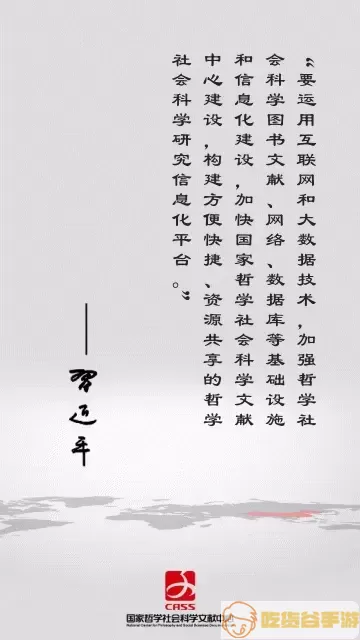 “要运用互联网和大数据技术，加强哲学社
会科学图书文献、网络、数据库等基础设施
和信息化建设，加快国家哲学社会科学文献
中心建设，构建方便快捷、资源共享的哲学
社会科学研究信息化平台。”
——习近平
CASS
国家哲学社会科学文献中心
National Center for Philosophy and Social Sciences Documentation
吃货谷手游